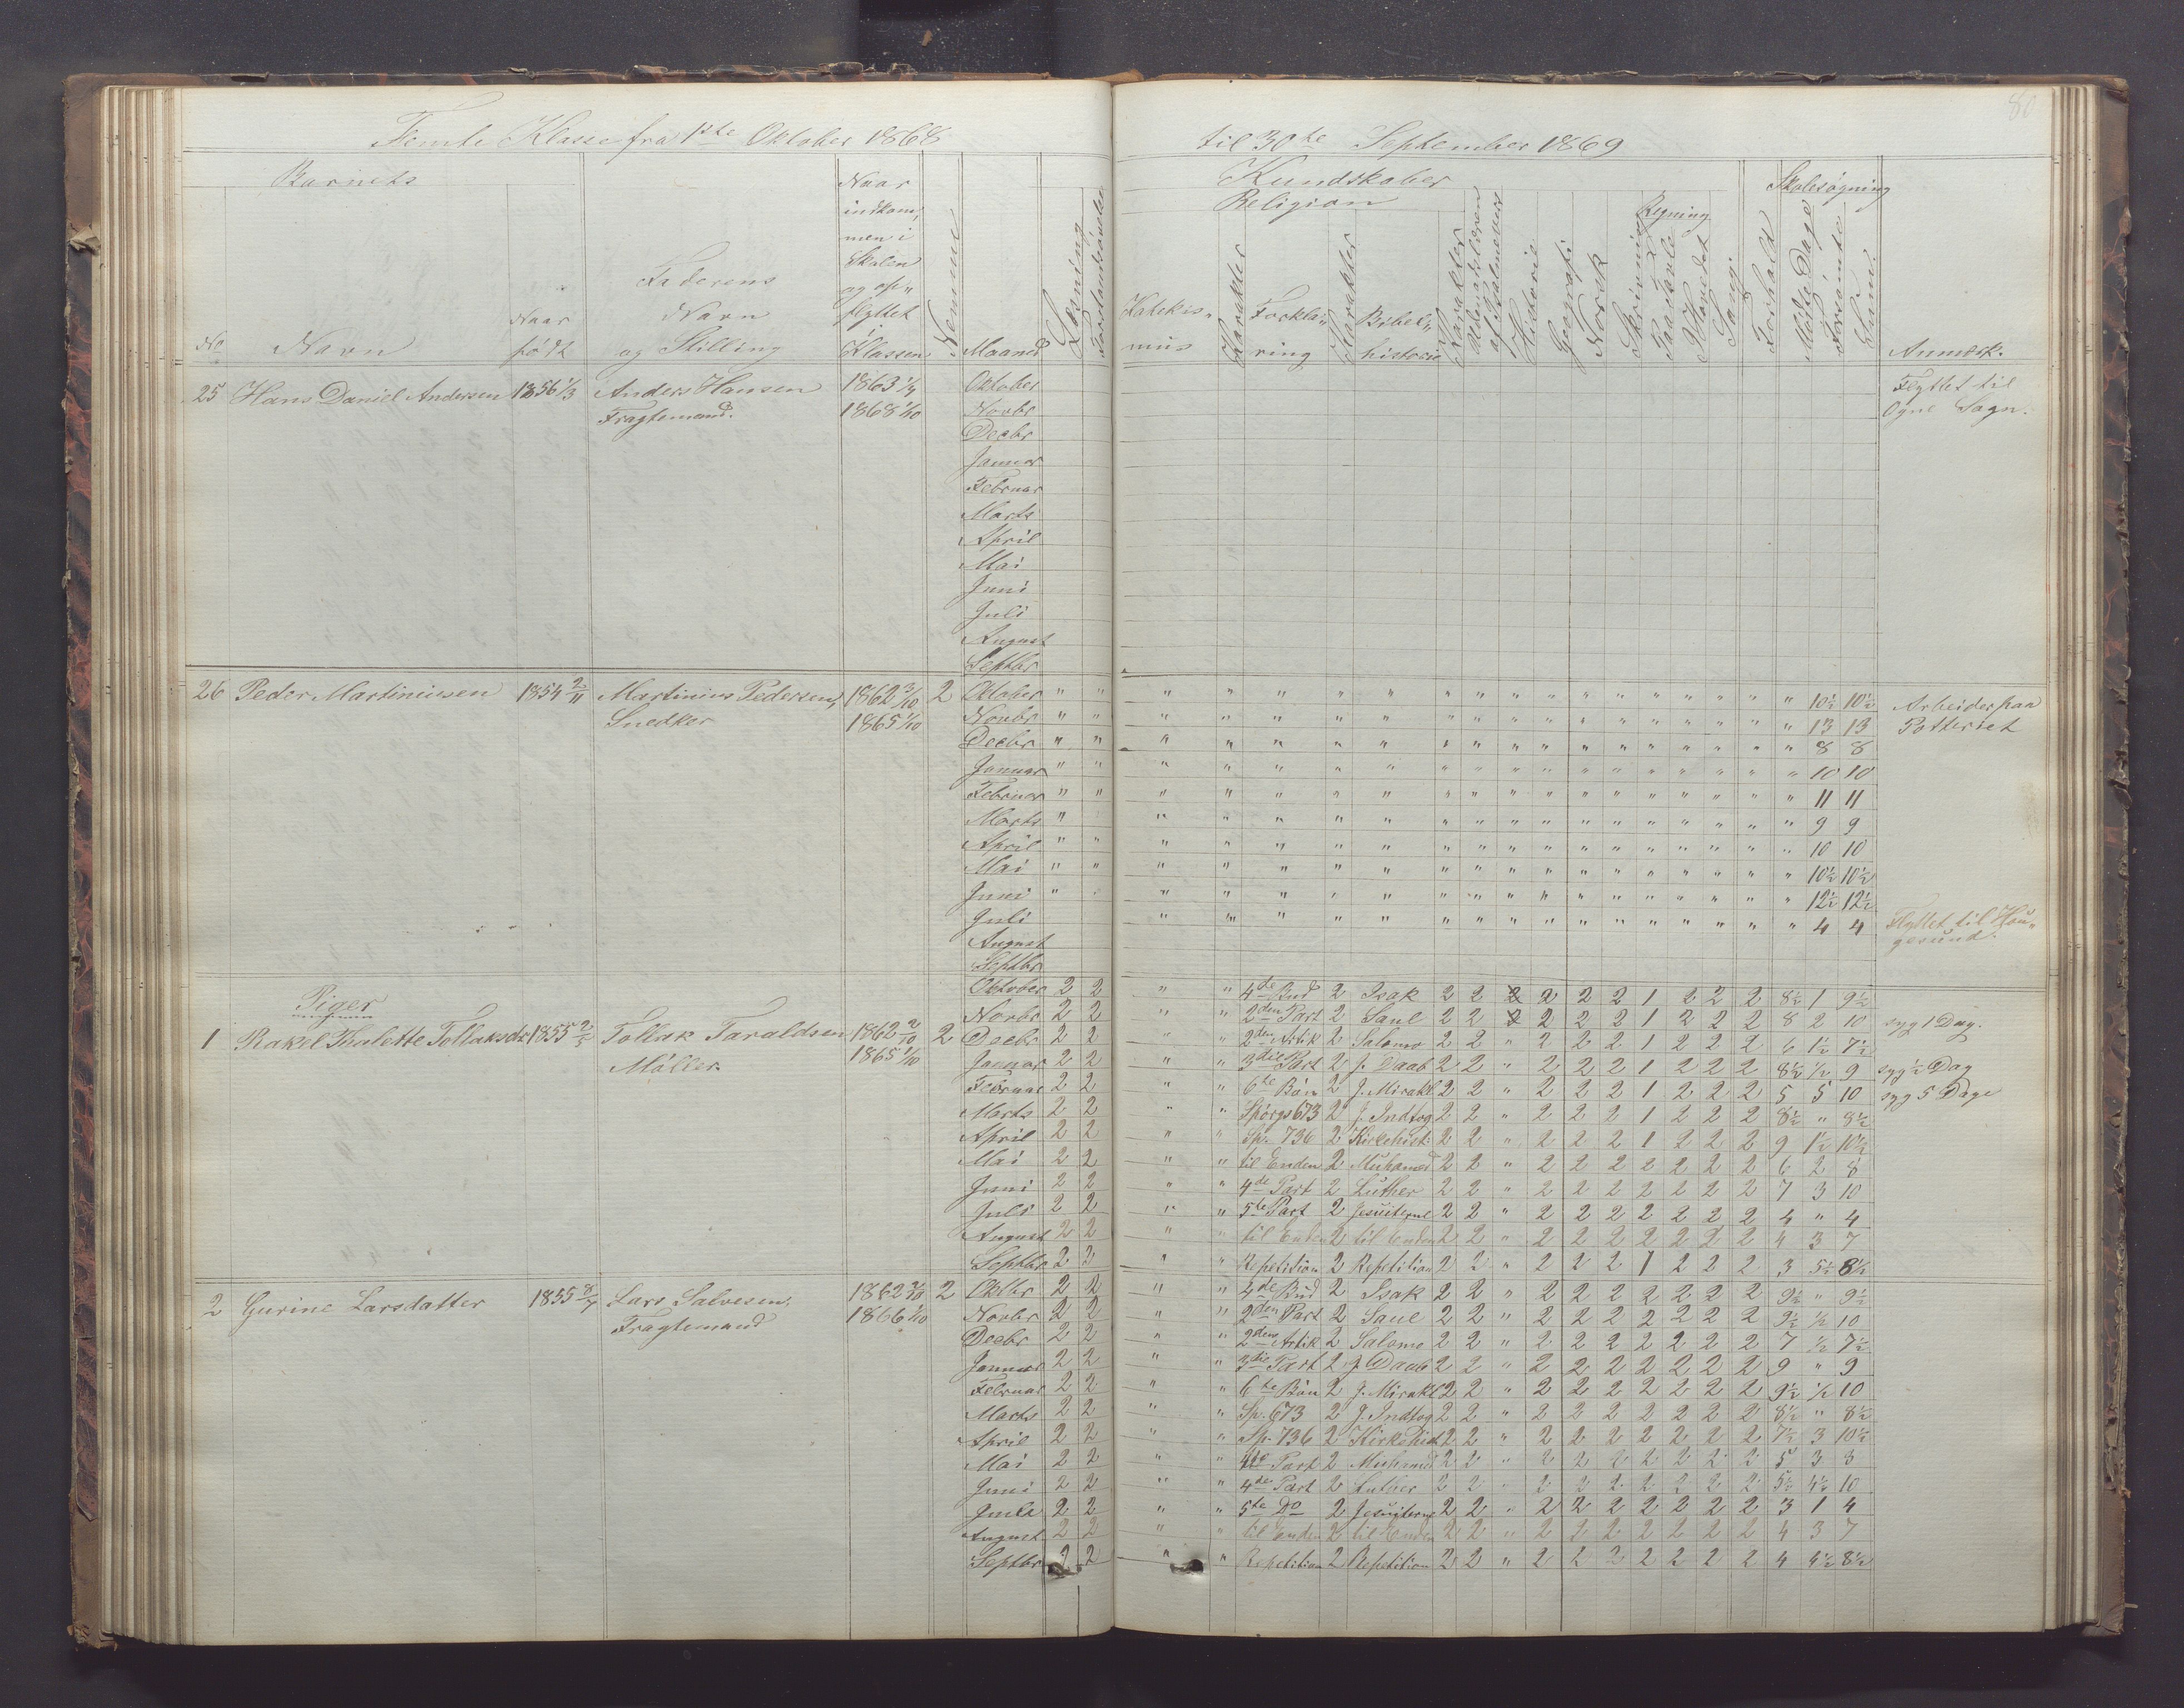 80
Femte Klasse fra 1ste Oktober 1868 til 30te September 1869
Barnets
No
Navn
Naar
født
Faderens
Navn
og Stilling
Naar
indkom,
men i
Skolen
og op„
flyttet
i
Klassen
Nemme
Maaned
Læsning
Forstandsøvelse
Kundskaber
Religion
Katekis„
mus
Karakter
Forkla„
ring
Karakter
Bibel„
historie
Karakter
Udenadslæren
af Salmevers
Historie
Geografi
Norsk
Skrivning
Regning
Paa Tavle
I Hovedet
Sang
Forhold
Skolesøgning
Mødte Dage
Forsømte
Sum
Anmærk.
25 Hans Daniel Andersen 1856 1/3 Anders Hansen 1863 1/4 Oktober Flyttet til
Fragtemand. 1868 1/10 Novbr Ogne Sogn.
Decbr
Januar
Februar
Marts
April
Mai
Juni
Juli
August
Septbr
26 Peder Martiniusen 1854 2/11 Martinius Pedersen, 1862 3/10 2 Oktober " " " " " " " " " " " " " " " " " " " 10½ 10½ Arbeider paa
Snedker 1865 1/10 Novbr " " " " " " " " " " " " " " " " " " " 13 13 Potteriet
Decbr " " " " " " " " " " " " " " " " " " " 8 8
Januar " " " " " " " " " " " " " " " " " " " 10 10
Februar " " " " " " " " " " " " " " " " " " " 11 11
Marts " " " " " " " " " " " " " " " " " " 9 9
April " " " " " " " " " " " " " " " " " " " 10 10
Mai " " " " " " " " " " " " " " " " " " " 10½ 10½
Juni " " " " " " " " " " " " " " " " " " " 12½ 12½
Juli " " " " " " " " " " " " " " " " " 4 4 Flyttet til Hau„
August gesund.
Septbr
Piger
Oktober 2 2 " " 4de Bud 2 Isak 2 2 2 2 2 2 1 2 2 2 8½ 1 9½
Novbr 2 2 " " 2den Part 2 Saul 2 2 2 2 2 2 1 2 2 2 8 2 10 syg 1 Dag.
1 Rakel Thalette Tollaksdr 1855 2/5 Tollak Taraldsen 1862 2/10 2 Decbr 2 2 " " 2den Artik 2 Salomo 2 2 " 2 2 2 1 2 2 2 6 1½ 7½
Møller 1865 1/10 Januar 2 2 " " 3die Part 2 J. Daab 2 2 " 2 2 2 1 2 2 2 8½ ½ 9 syg ½ Dag
Februar 2 2 " " 6te Bøn 2 J. Mirakl 2 2 " 2 2 2 1 2 2 2 5 5 10 syg 5 Dage
Marts 2 2 " " Spørgs 673 2 J. Indtog 2 2 " 2 2 2 1 2 2 2 8½ " 8½
April 2 2 " " Sp. 736 2 Kirkehist 2 2 " 2 2 2 1 2 2 2 9 1½ 10½
Mai 2 2 " " til Enden 2 Muhamed 2 2 " 2 2 2 2 2 2 2 6 2 8
Juni 2 2 " " 4de Part 2 Luther 2 2 " 2 2 2 2 2 2 2 7 3 10
Juli 2 2 " " 5te Part 2 Jesuiterne 2 2 " 2 2 2 2 2 2 2 4 " 4
August 2 2 " " til Enden 2 til Enden 2 2 " 2 2 2 2 2 2 2 4 3 7
Septbr 2 2 " " Repetition 2 Repetition 2 2 " 2 2 2 1 2 2 2 3 5½ 8½
2 Gurine Larsdatter 1855 8/7 Lars Salvesen, 1862 2/10 2 Oktbr 2 2 " " 4de Bud 2 Isak 2 2 " 2 2 2 2 2 2 2 9½ " 9½
Fragtemand 1866 1/10 Novbr 2 2 " " 2den Part 2 Saul 2 2 " 2 2 2 2 2 2 2 9½ ½ 10
Decbr 2 2 " " 2den Artik 2 Salomo 2 2 " 2 2 2 2 2 2 2 7 ½ 7½
Januar 2 2 " " 3die Part 2 J. Daab 2 2 " 2 2 2 2 2 2 2 9 " 9
Februar 2 2 " " 6te Bøn 2 J. Mirakl 2 2 " 2 2 2 2 2 2 2 9½ ½ 10
Marts 2 2 " " Sp. 673 2 J. Indtog 2 2 " 2 2 2 2 2 2 2 8½ " 8½
April 2 2 " " Sp. 736 2 Kirkehist 2 2 " 2 2 2 2 2 2 2 7½ 3 10½
Mai 2 2 " " Part 2 Muhmed 2 2 " 2 2 2 2 2 2 2 5 3 8
Juni 2 2 " " 4de Part 2 Luther 2 2 " 2 2 2 2 2 2 2 5½ 4½ 10
Juli 2 2 " " 5te Do 2 Jesuiterne 2 2 " 2 2 2 2 2 2 2 3 1 4
August 2 2 " " til Enden 2 til Enden 2 2 " 2 2 2 2 2 2 2 4 3 7
Septbr 2 2 " " Repetition 2 Repetition 2 2 " 2 2 2 2 2 2 2 4 4½ 8½